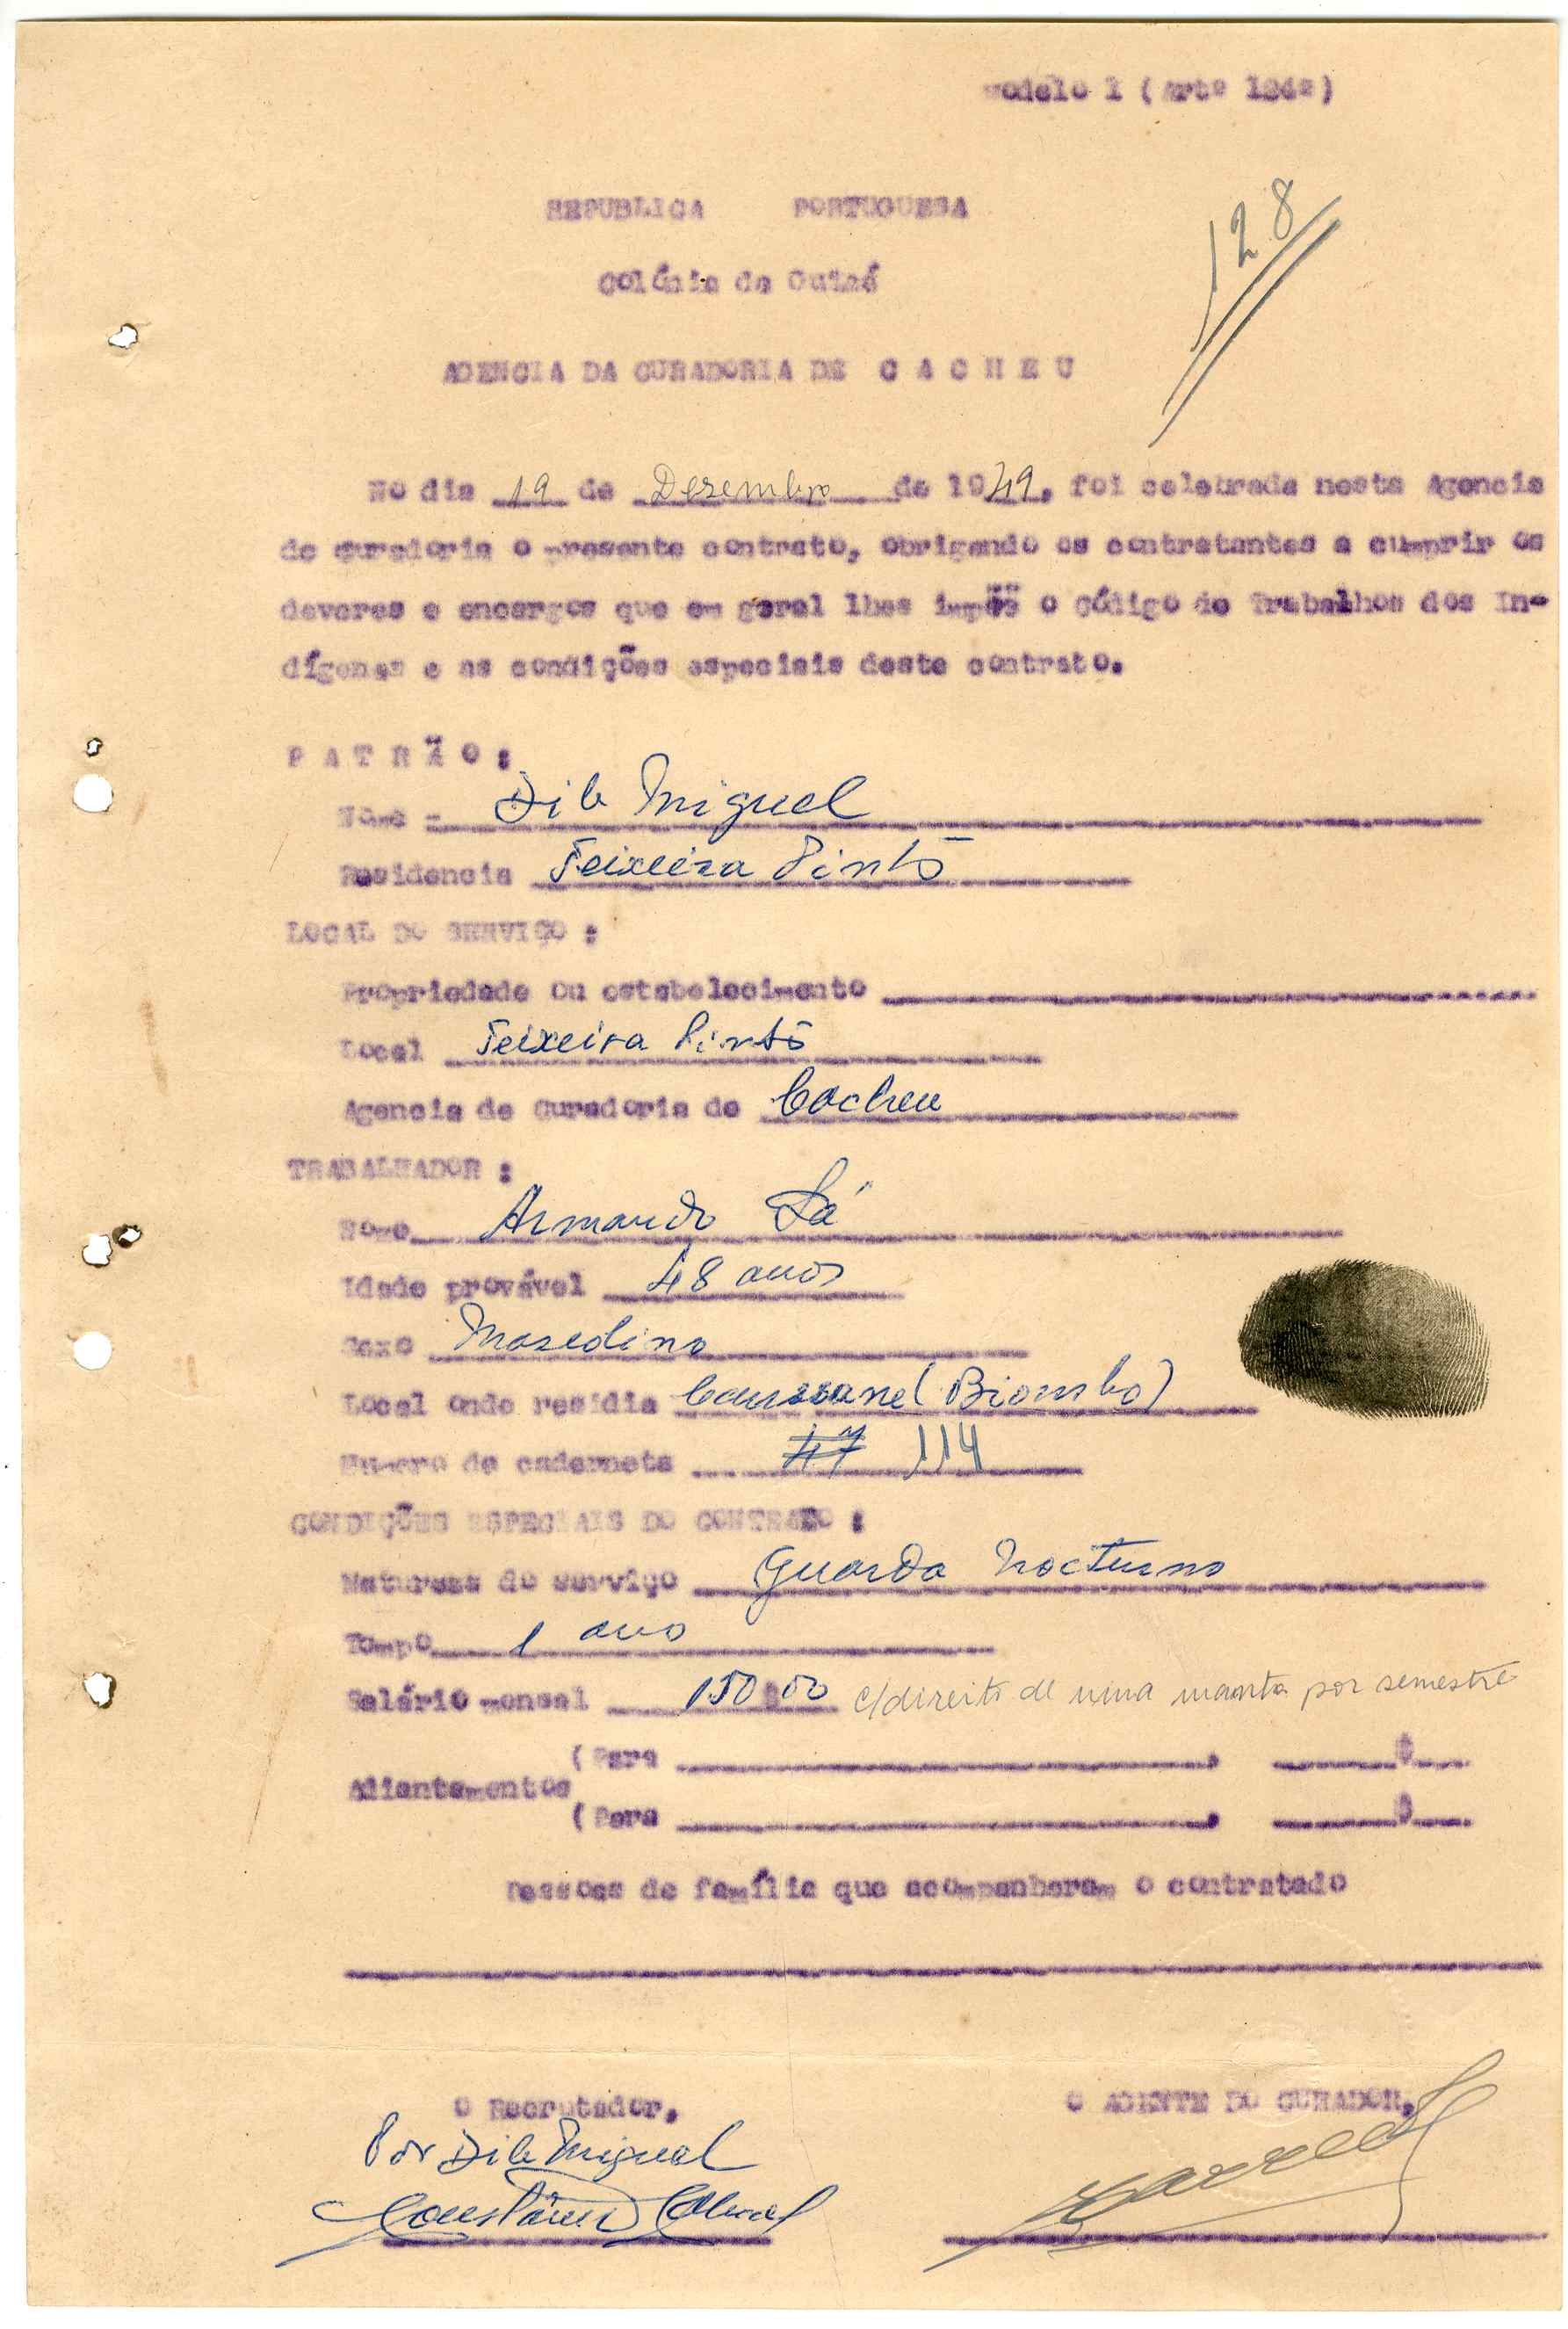 Modelo 1 (Artº 124º)
128
REPUBLICA PORTUGUESA
Colónia da Guiné
AGENCIA DA CURADORIA DE C A C H E U
No dia 19 de Dezembro de 1949, foi celebrado nesta Agencia
de Curadoria o presente contrato, obrigando os contratantes a cumprir os
deveres e encargos que em geral lhes impõe o Código do Trabalhos dos In-
dígenas e as condições especiais deste contrato.
P A T R Ã O :
Nome - Dib Miguel
Residencia Teixeira Pinto
LOCAL DO SERVIÇO :
Propriedade ou estabelecimento
Local Teixeira Pinto
Agencia de Curadoria de Cacheu
TRABALHADOR :
Nome Armando Sá
Idade provável 48 anos
Sexo Masculino
Local onde residia (Biombo)
Numero de caderneta 47 114
CONDIÇÕES ESPECIAIS DO CONTRATO :
Natureza do serviço Guarda Nocturno
Tempo 1 ano
Salário mensal 150$00 c/direito de uma manta por semestre
(Para , $
Adiantamentos
(Para , $
Pessoas de família que acompanharam o contratado
O Recrutador,
O AGENTE DO CURADOR,
Por Dib Miguel